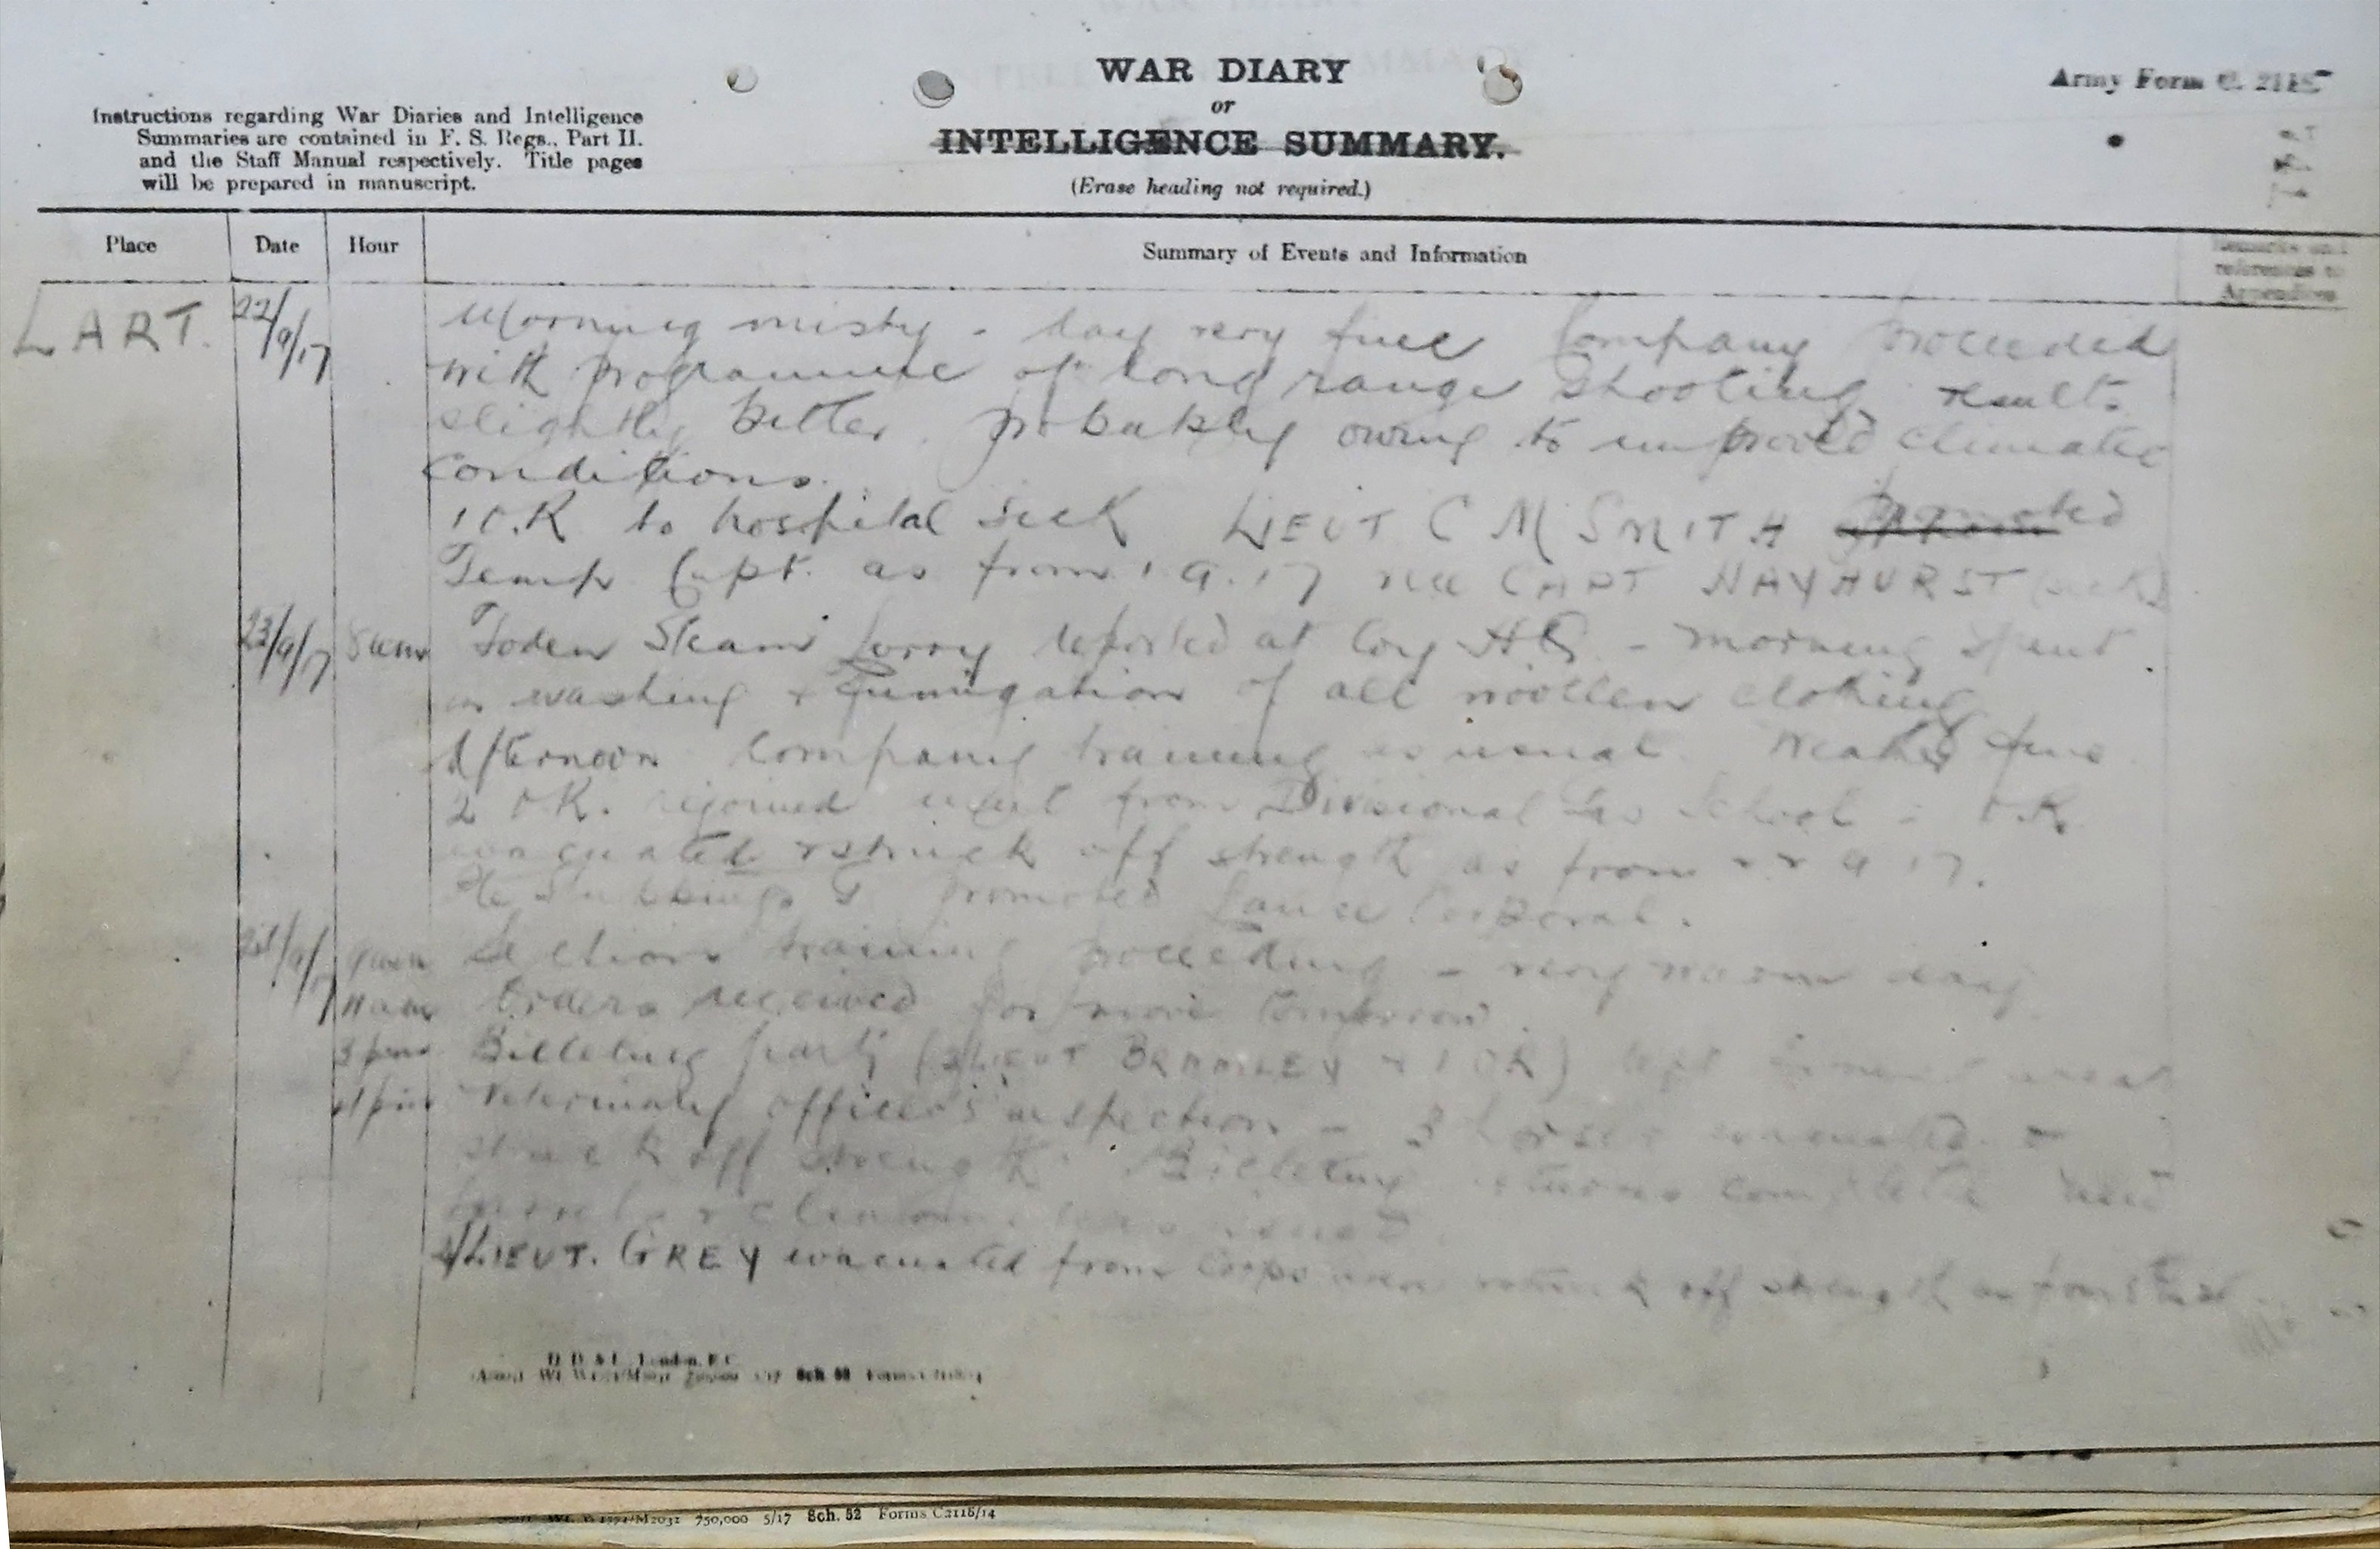 WAR DIARY
or
INTELLIGENCE SUMMARY.
(Erase heading not required.)
Army Form C. 2118.
Instructions regarding War Diaries and Intelligence
Summaries are contained in F. S. Regs., Part II.
and the Staff Manual respectively. Title pages
will be prepared in manuscript.
Place Date Hour Summary of Events and Information Remarks and
references to
Appendices
LART. 22/9/17 Morning misty - day very fine Company proceeded
with programme of long range shooting results
slightly better. probably owing to improved climatic
conditions.
1 O.R to hospital sick LIEUT C M SMITH promoted
Temp Capt. as from 1 9.17 vice CAPT HAYHURST (sick)
23/9/17 8am Foden Steam Lorry reported at Coy HQ - morning spent
in washing & fumigation of all woollen clothing
Afternoon Company training as usual. Weather fine
2 O.R. rejoined unit from Divisional Gas School - O.R.
evacuated & struck off strength as from 22 9 17.
promoted Lance Corporal.
24/9/17 9am Section training proceeding - very warm day
11am Orders received for move tomorrow.
3pm Billeting party (2/LIEUT BRAMLEY & 1 OR) left
4pm Veterinary officer's inspection - 3 horses evacuated &
struck off strength. Billeting complete
2/LIEUT. GREY evacuated from Corps struck off strength as from
D. D. & L., London, E.C.
Sch. 52
750,000 5/17 Sch. 52 Forms C2118/14